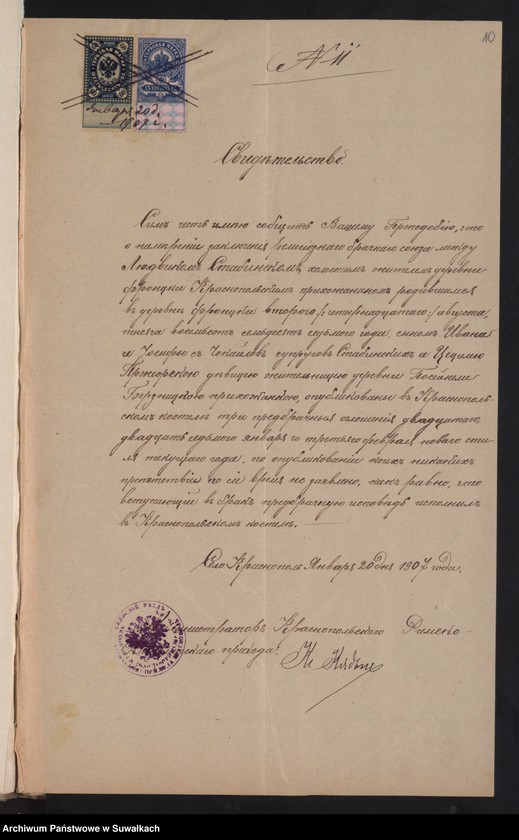 10
N 11
Января 20 д.
1907 г.
Свидѣтельство.
Симъ честь имѣю сообщить Вашему Преподобію, что
о намѣреніи заключенія религіознаго брачнаго союза между
Людвикомъ Стабинскимъ, холостымъ жителемъ деревни
Фронцки Краснопольскимъ прихожаниномъ родившимся
въ деревнѣ Фронцки второго /:четырнадцатаго:/ августа
тысяча восемьсотъ семьдесятъ седьмого года, сыномъ Ивана
и Іозефы съ супруговъ Стабинскихъ а Цецилію
дѣвицею жительницею деревни
прихожанкою, опубликованы въ Краснополь-
скомъ костелѣ три предбрачныя оглашенія двадцатаго,
двадцать седьмого января и третьяго февраля новаго сти-
ля текущаго года, по опубликованіи коихъ никакихъ
препятствій по сіе время не заявлено, какъ равно, что
вступающій въ бракъ предбрачную исповѣдь исполнилъ
въ Краснопольскомъ костелѣ.
Село Краснополь Января 20 дня 1907 года.
Администраторъ Краснопольскаго Римско-
прихода:
Archiwum Państwowe w Suwałkach